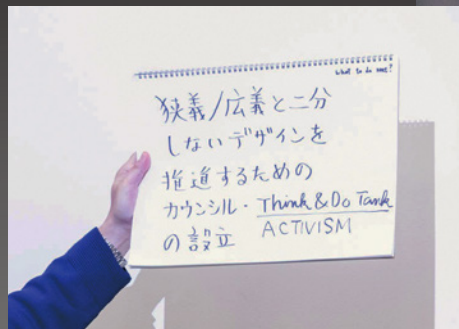 What to do next?
狭義/広義と二分
しないデザインを
推進するための
カウンシル・Think & Do Tank
の設立 ACTIVISM